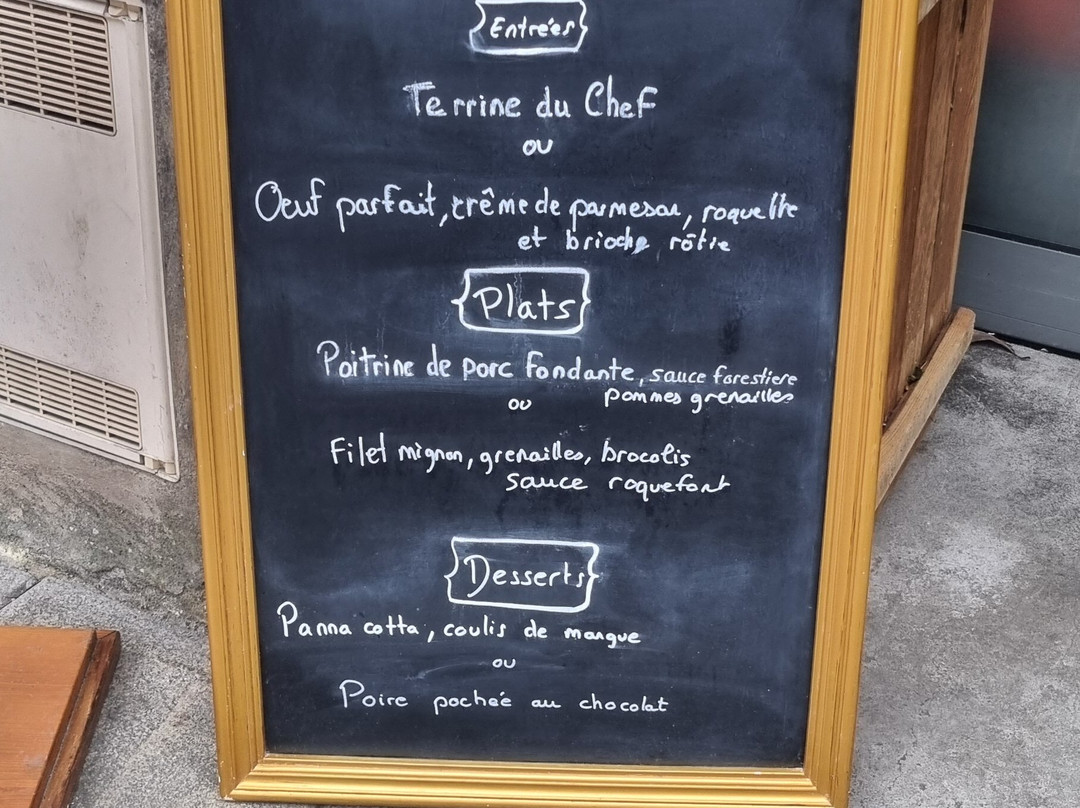 Entrées
Terrine du Chef
ou
Oeuf parfait, crême de parmesan, roquette
et brioche rôtie
Plats
Poitrine de porc fondante, sauce forestiere
pommes grenailles
ou
Filet mignon, grenailles, brocolis
sauce roquefort
Desserts
Panna cotta, coulis de mangue
ou
Poire pochée au chocolat